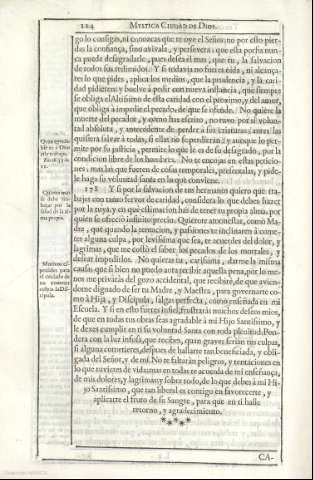 224 MYSTICA CIUDAD DE DIOS.
go lo consigas, ni conozcas que te oye el Señor; no por esto pier-
das la confiança, sino avivala, y persevera; que esta porfia nun-
ca puede desagradarle, pues desea el mas, que tu, la salvacion
de todos sus redimidos. Y si todavia no fueres oida, ni alcança-
res lo que pides, aplica los medios, que la prudencia, y la cari-
dad pidieren; y buelve à pedir con nueva instancia, que siempre
se obliga el Altissimo de esta caridad con el proximo, y del amor,
que obliga à impedir el pecado, de que se ofende. No quiere la
muerte del pecador, y como has escrito, no tuvo por si volun-
tad absoluta, y antecedente de perder à sus criaturas; antes las
quisiera salvar à todas, si ellas no se perdieran; y aunque lo per-
mite por su justicia, permite lo que le es de su desagrado, por la
condicion libre de los hombres. No te encojas en estas peticio-
nes; mas las que fueren de cosas temporales, presentalas, y pide-
le haga su voluntad santa en lo que conviene.
178 Y si por la salvacion de tus hermanos quiero que tra-
bajes con tanto fervor de caridad, considera lo que debes hazer
por la tuya, y en què estimacion has de tener tu propia alma, por
quien se ofreciò infinito precio. Quierote amonestar, como Ma-
dre, que quando la tentacion, y passiones te inclinaren à come-
ter alguna culpa, por levissima que sea, te acuerdes del dolor, y
lagrimas, que me costò el saber los pecados de los mortales, y
desear impedirlos. No quieras tu, carissima, darme la misma
causa; que si bien no puedo aora recibir aquella pena, por lo me-
nos me privaràs del gozo accidental, que recibirè, de que avien-
dome dignado de ser tu Madre, y Maestra, para governarte co-
mo à Hija, y Discipula, salgas perfecta, como enseñada en mi
Escuela. Y si en esto fueres infiel, frustraràs muchos deseos mios,
de que en todas tus obras seas agradable à mi Hijo Santissimo, y
le dexes cumplir en ti su voluntad Santa con toda plenitud. Pon-
dera con la luz infusa, que recibes, quan graves serian tus culpas,
si alguna cometieres, despues de hallarte tan beneficiada, y obli-
gada del Señor, y de mi. No te faltaràn peligros, y tentaciones en
lo que tuvieres de vida; mas en todas te acuerda de mi enseñança,
de mis dolores, y lagrimas, y sobre todo, de lo que debes à mi Hi-
jo Santissimo, que tan liberal es contigo en favorecerte, y
aplicarte el fruto de su Sangre, para que en ti halle
retorno, y agradecimiento.
CA-